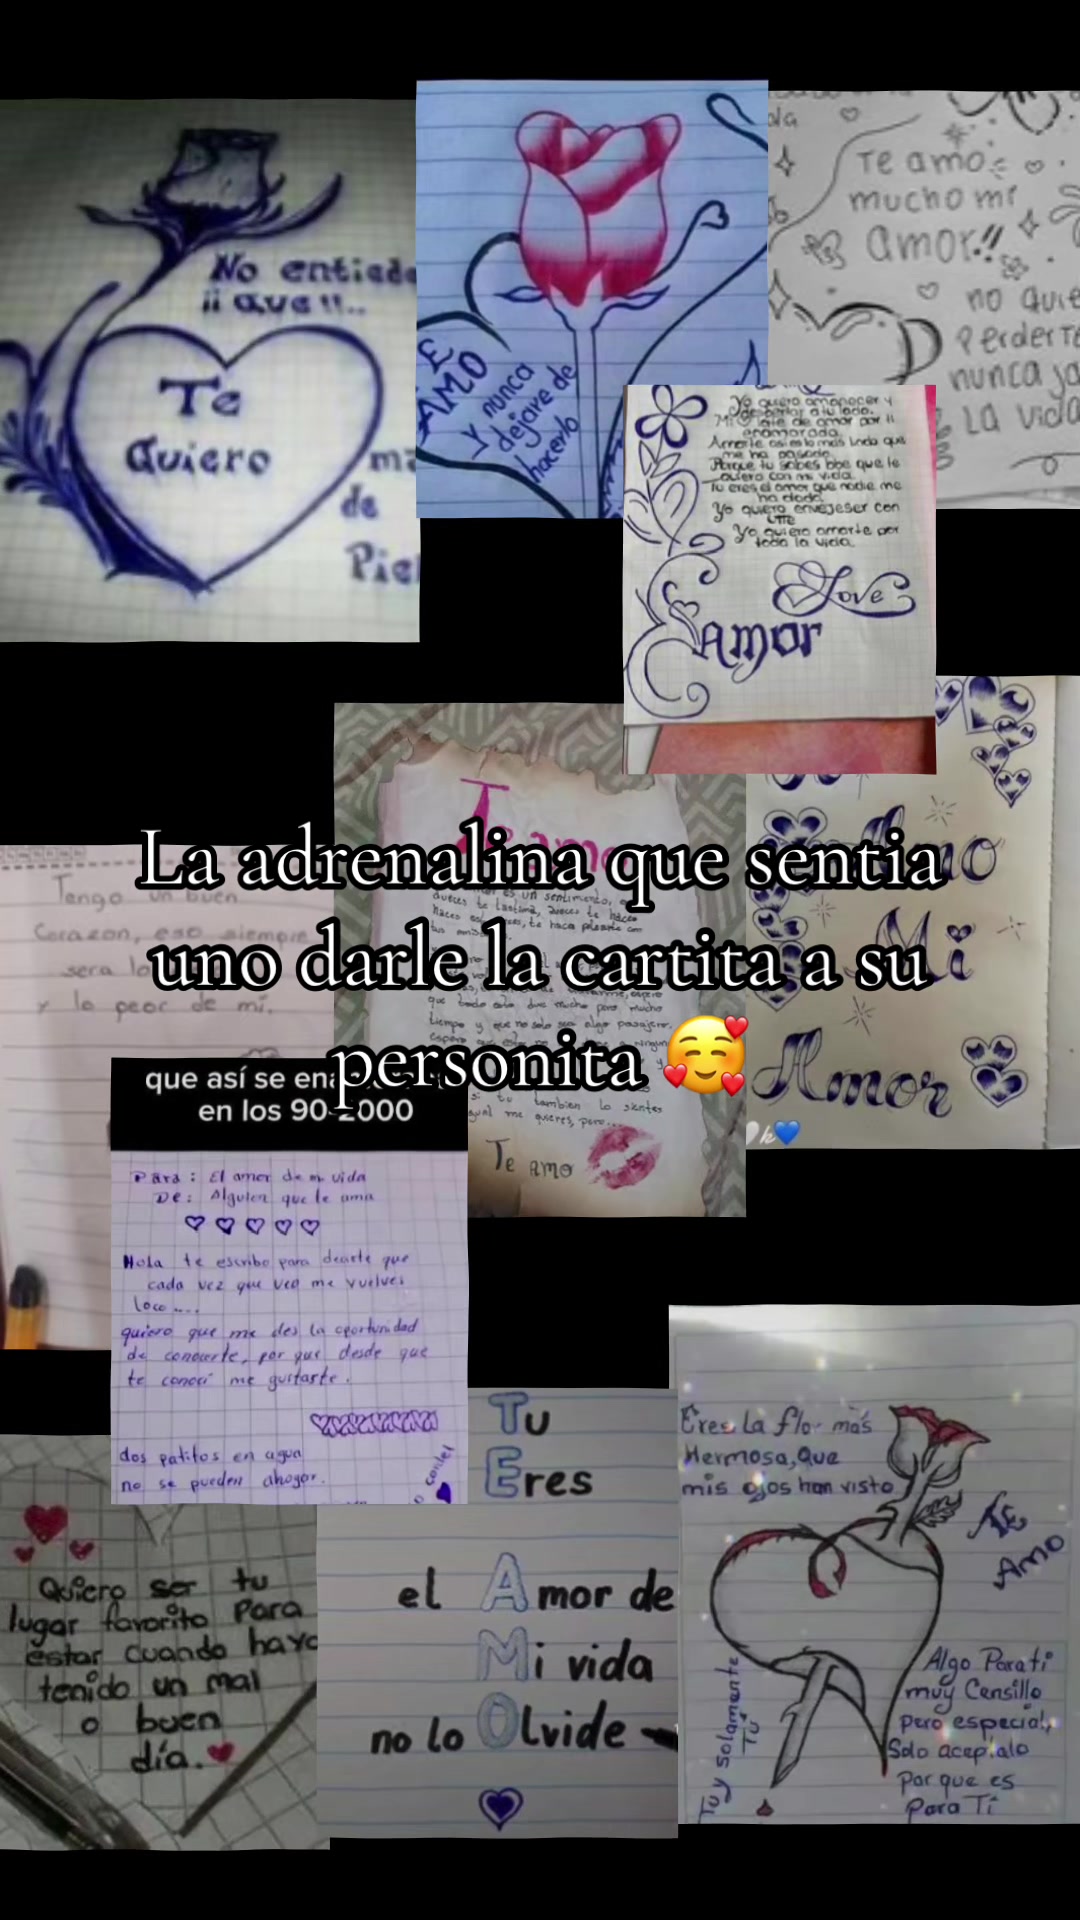 No entiede
¡¡ que !!..
Te
Quiero
ma
de
Piel
AMO
y nunca
dejare de
hacerlo
Te amo
mucho mi
amor!!
no quie
Perderte
nunca ja
La vida
Yo quiero amanecer y
despertar a tu lado.
enamorada.
me ha pasado.
Porque tu sabes bbe que te
quiero con mi vida.
Tu eres el amor que nadie me
ha dado.
Yo quiero envejeser con
Yo quiero amarte por
toda la vida.
Love
Amor
Te amo
es un sentimiento,
Mi
Amor
La adrenalina que sentia
uno darle la cartita a su
personita 🥰
Tengo un buen
Corazon, eso siempre
sera lo
y lo peor de mi.
que todo esto dure mucho pero mucho
tiempo y que no solo sea algo pasajero.
si tu tambien lo sientes
igual me quieres, pero...
Te amo
que así se ena
en los 90-2000
Para: El amor de mi vida
De: Alguien que te ama
Hola te escribo para decirte que
cada vez que veo me vuelves
loco....
quiero que me des la oportunidad
de conocerte, por que desde que
te conoci me gustaste.
dos patitos en agua
no se pueden ahogar.
Tu
Eres
el Amor de
Mi vida
no lo Olvide
Quiero ser tu
lugar favorito Para
estar cuando haya
tenido un mal
o buen
día.
Eres la flor más
Hermosa, Que
mis ojos han visto
Te
Amo
Tu y solamente
Tu
Algo Para ti
muy Censillo
pero especial,
Solo aceptalo
Por que es
Para Ti